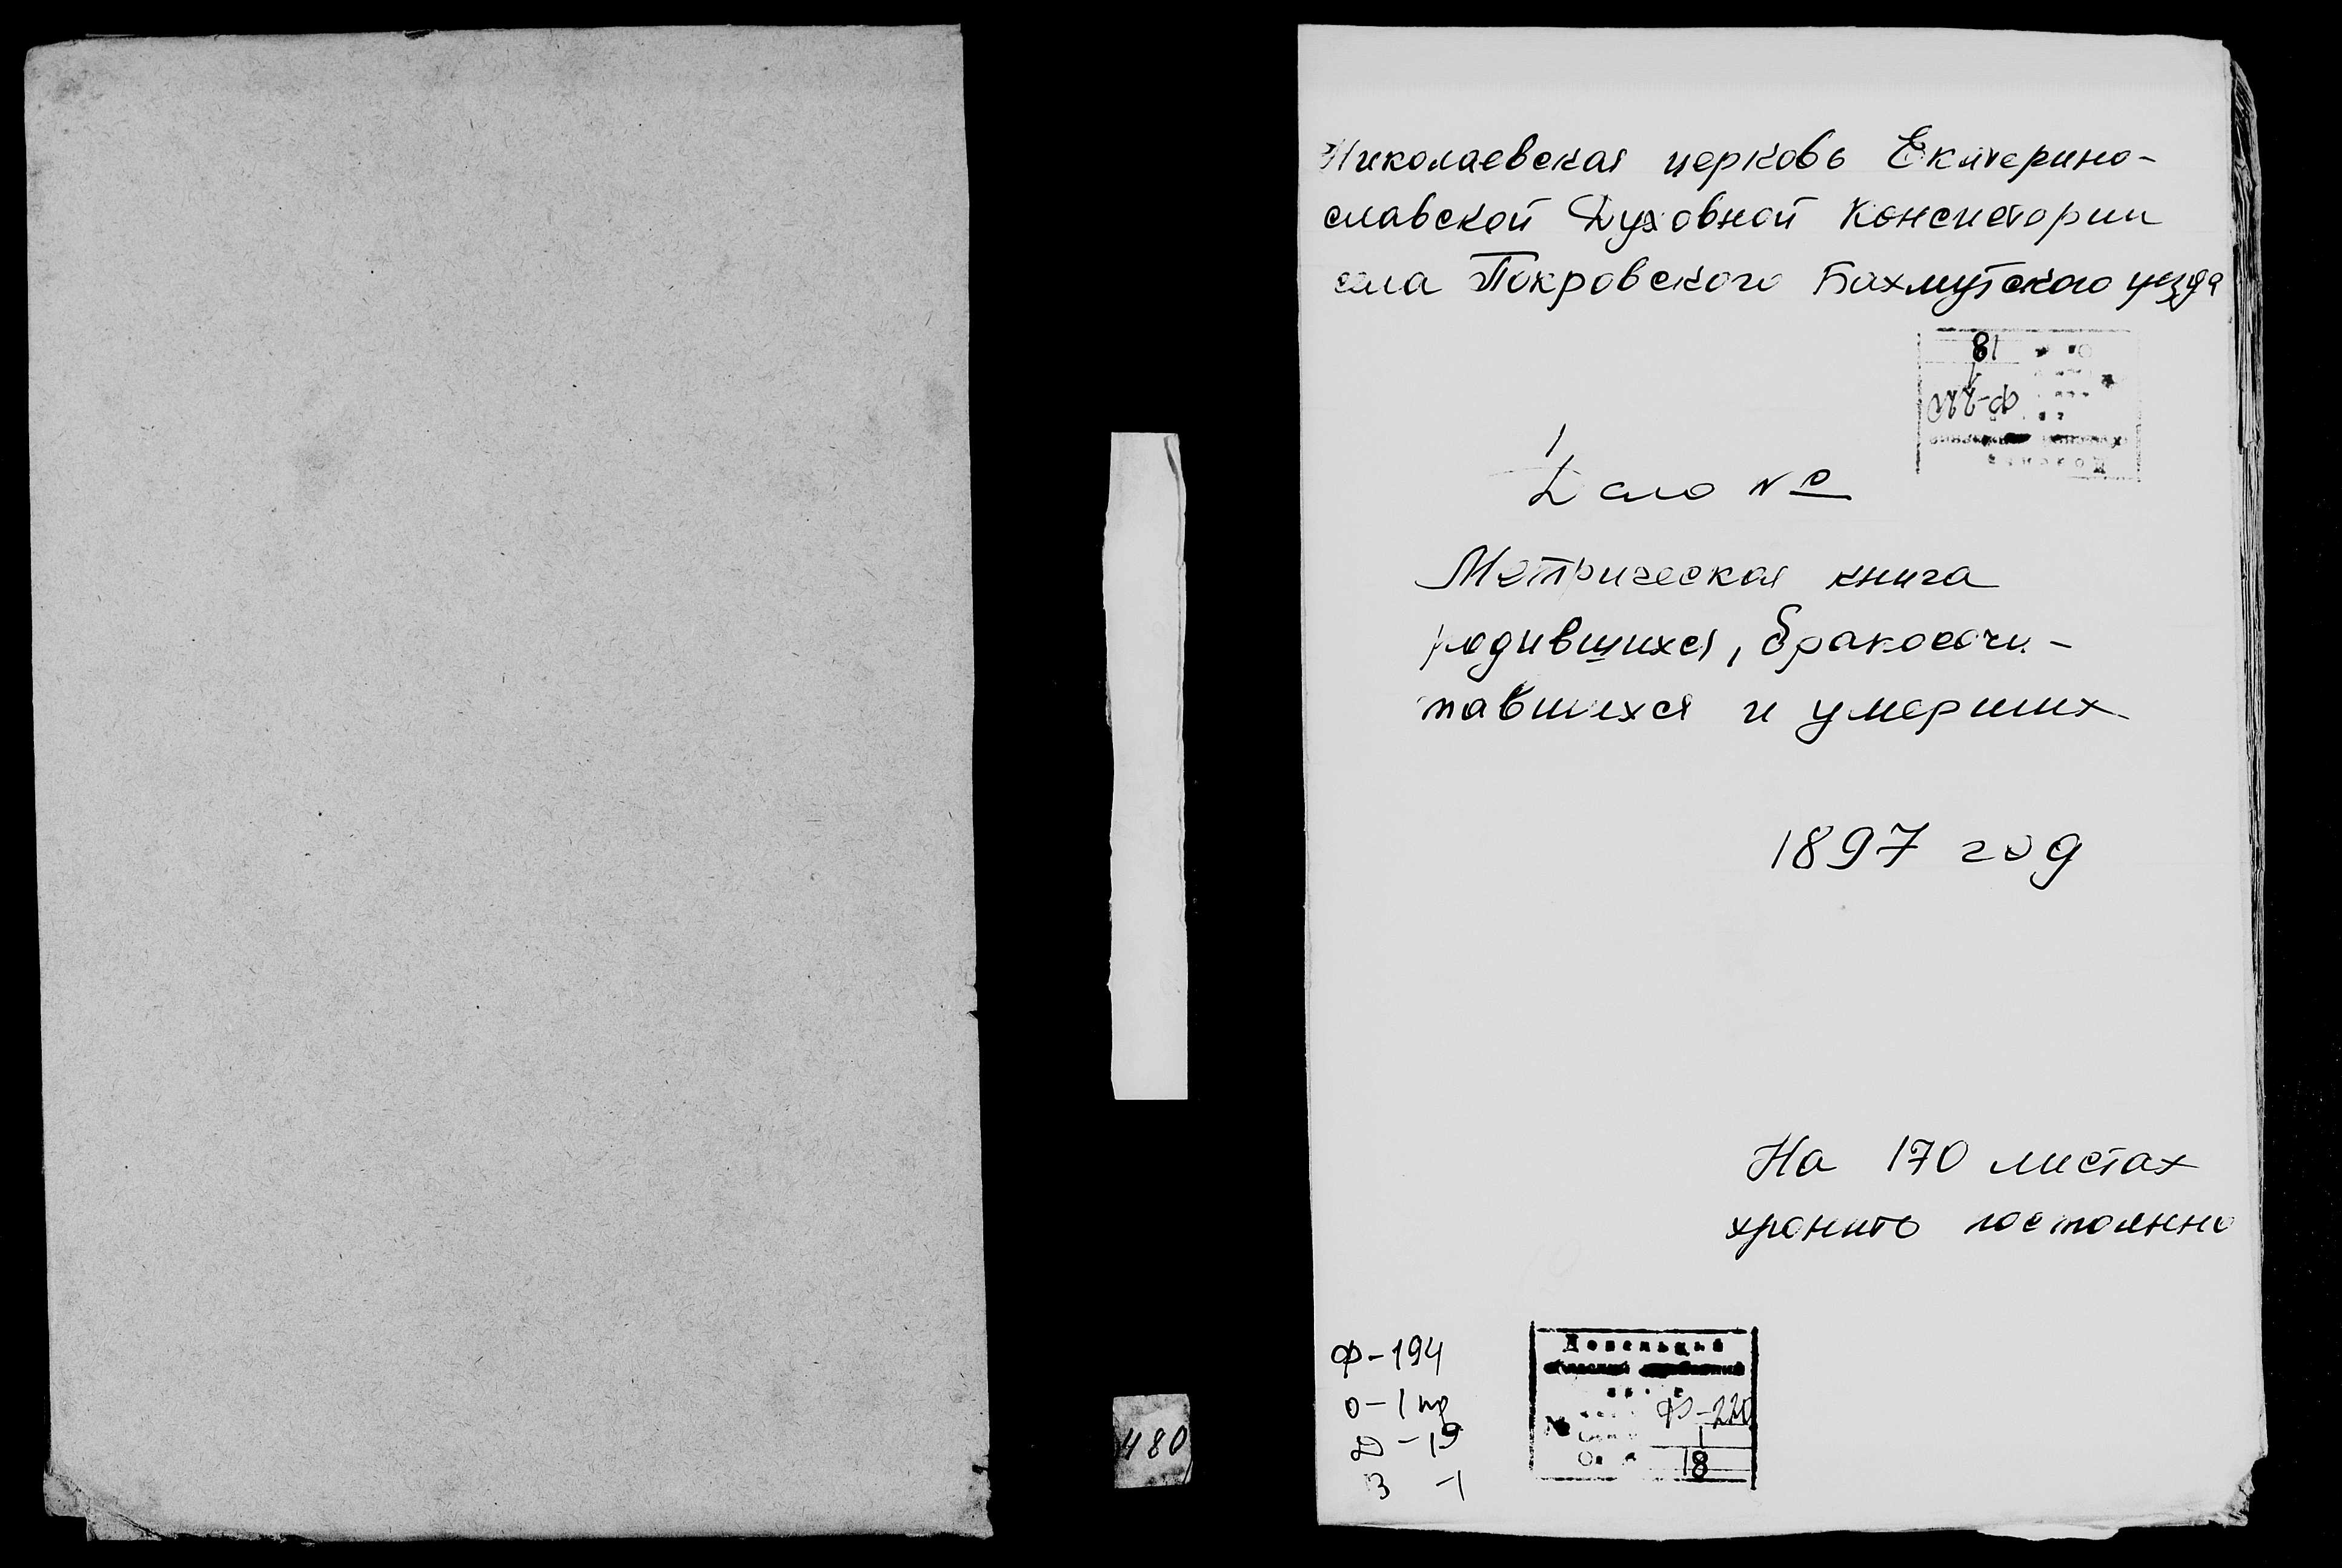 Николаевская церковь Екатерино-
славской Духовной Консистории
села Покровского Бахмутского уезда
Дело №
Метрическая книга
родившихся, бракосоче-
тавшихся и умерших
1897 год
На 170 листах
хранить постоянно
Ф-194
О-1
Д-19
1
Донецький
№ Ф-220
1
18
480